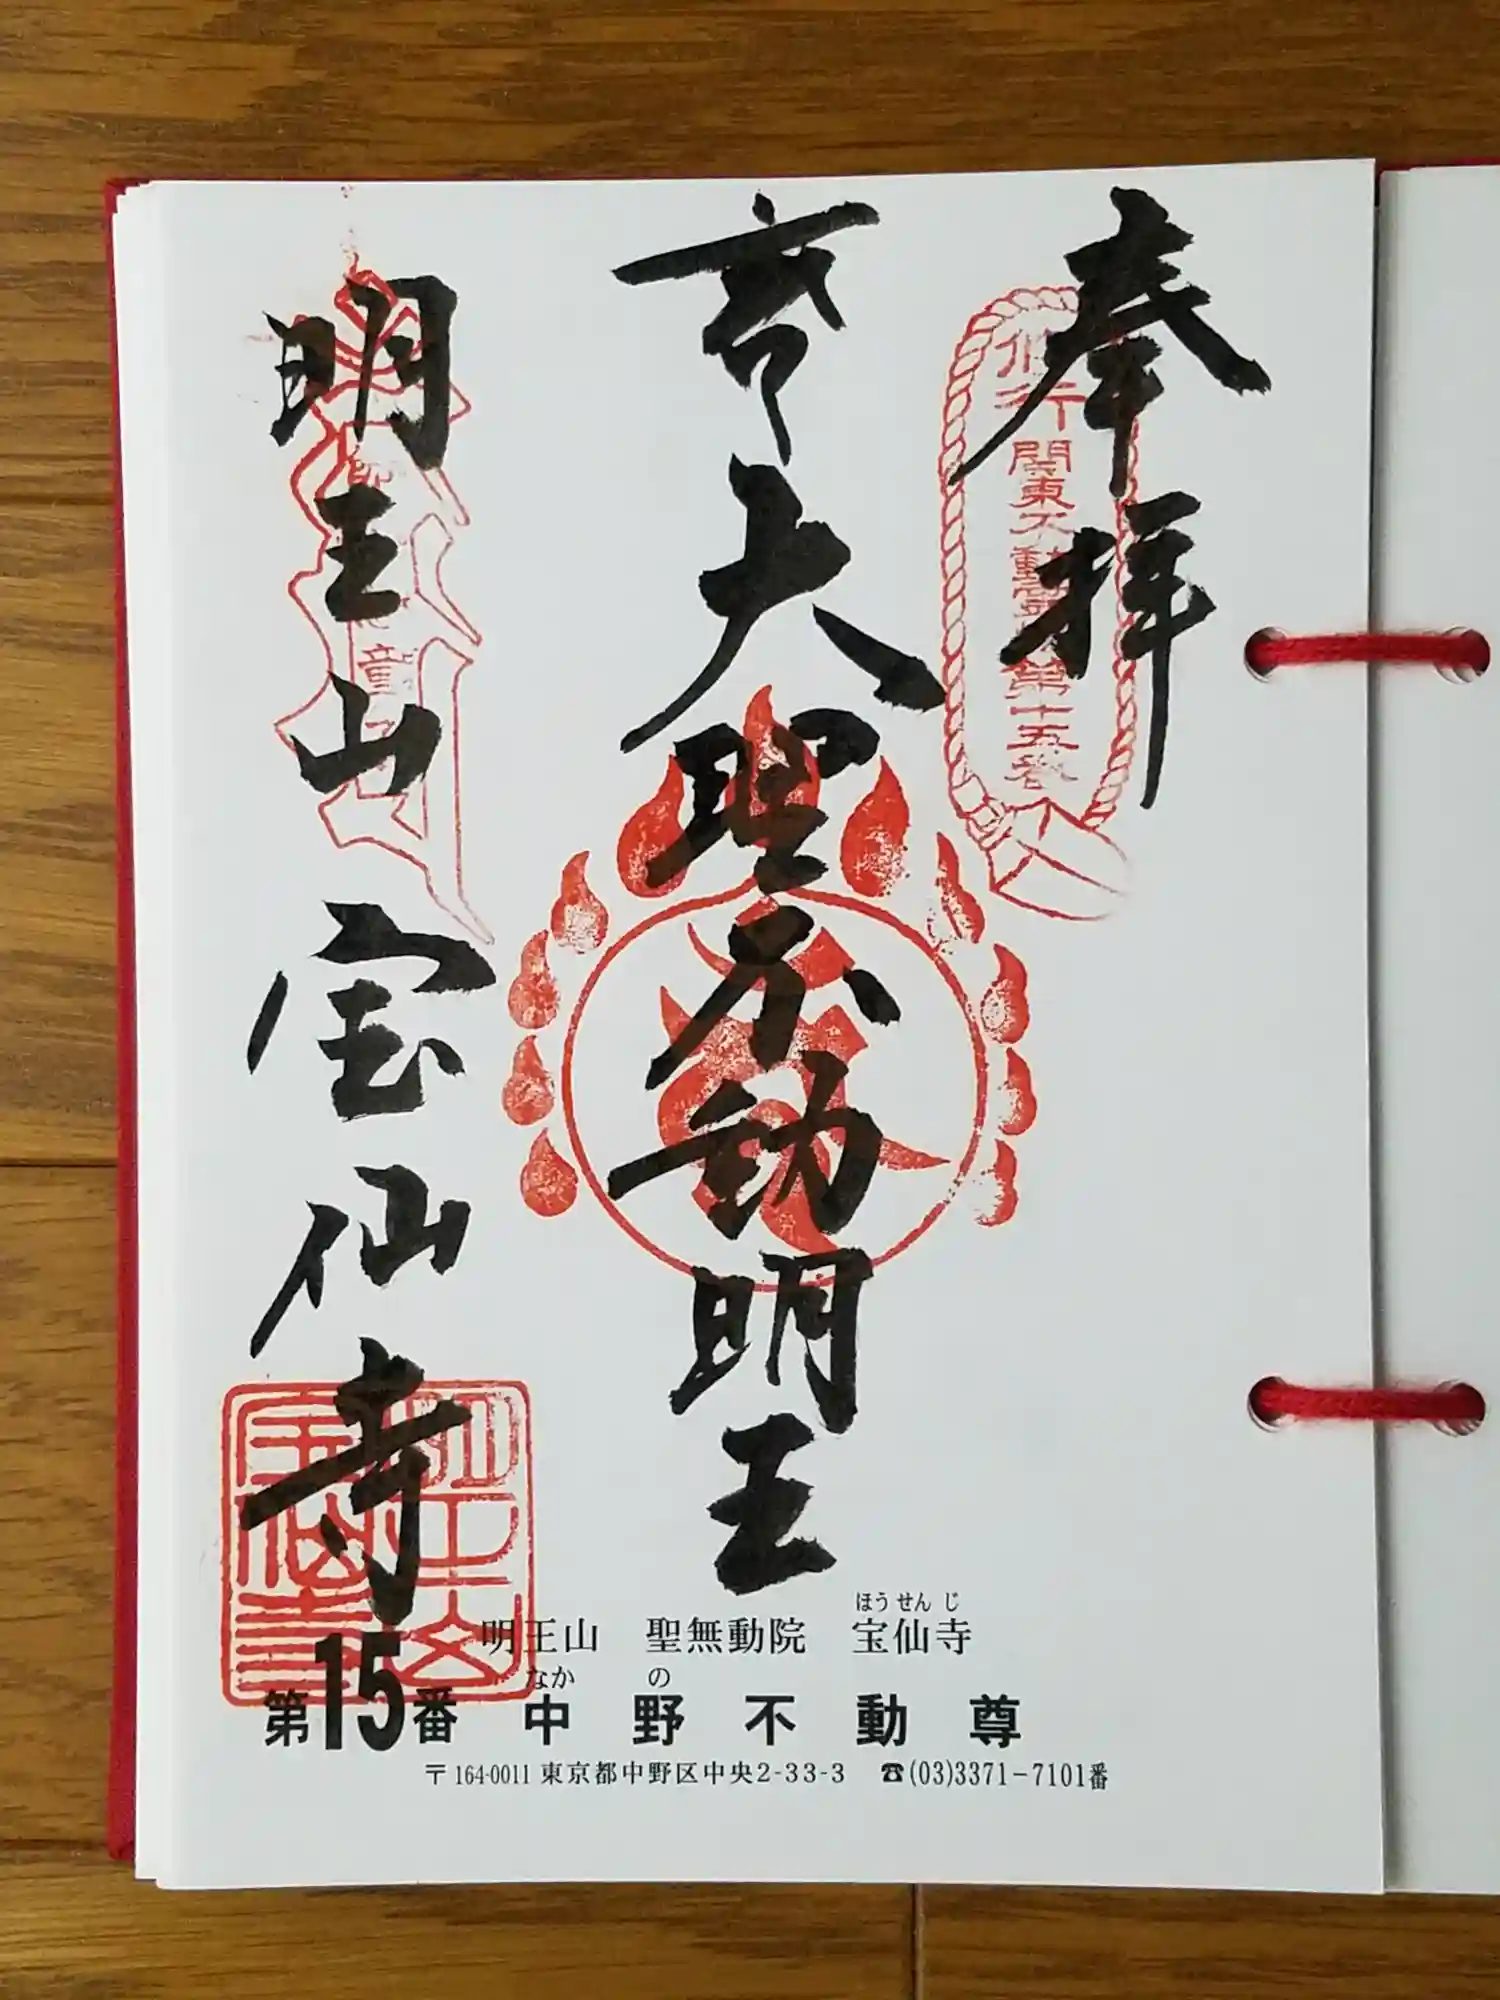 奉拝
修行
関東不動霊場第十五番
大聖不動明王
明王山
宝仙寺
明王山 聖無動院 宝仙寺
ほうせんじ
なかの
第15番 中野不動尊
〒164-0011 東京都中野区中央2-33-3 ☎(03)3371-7101番